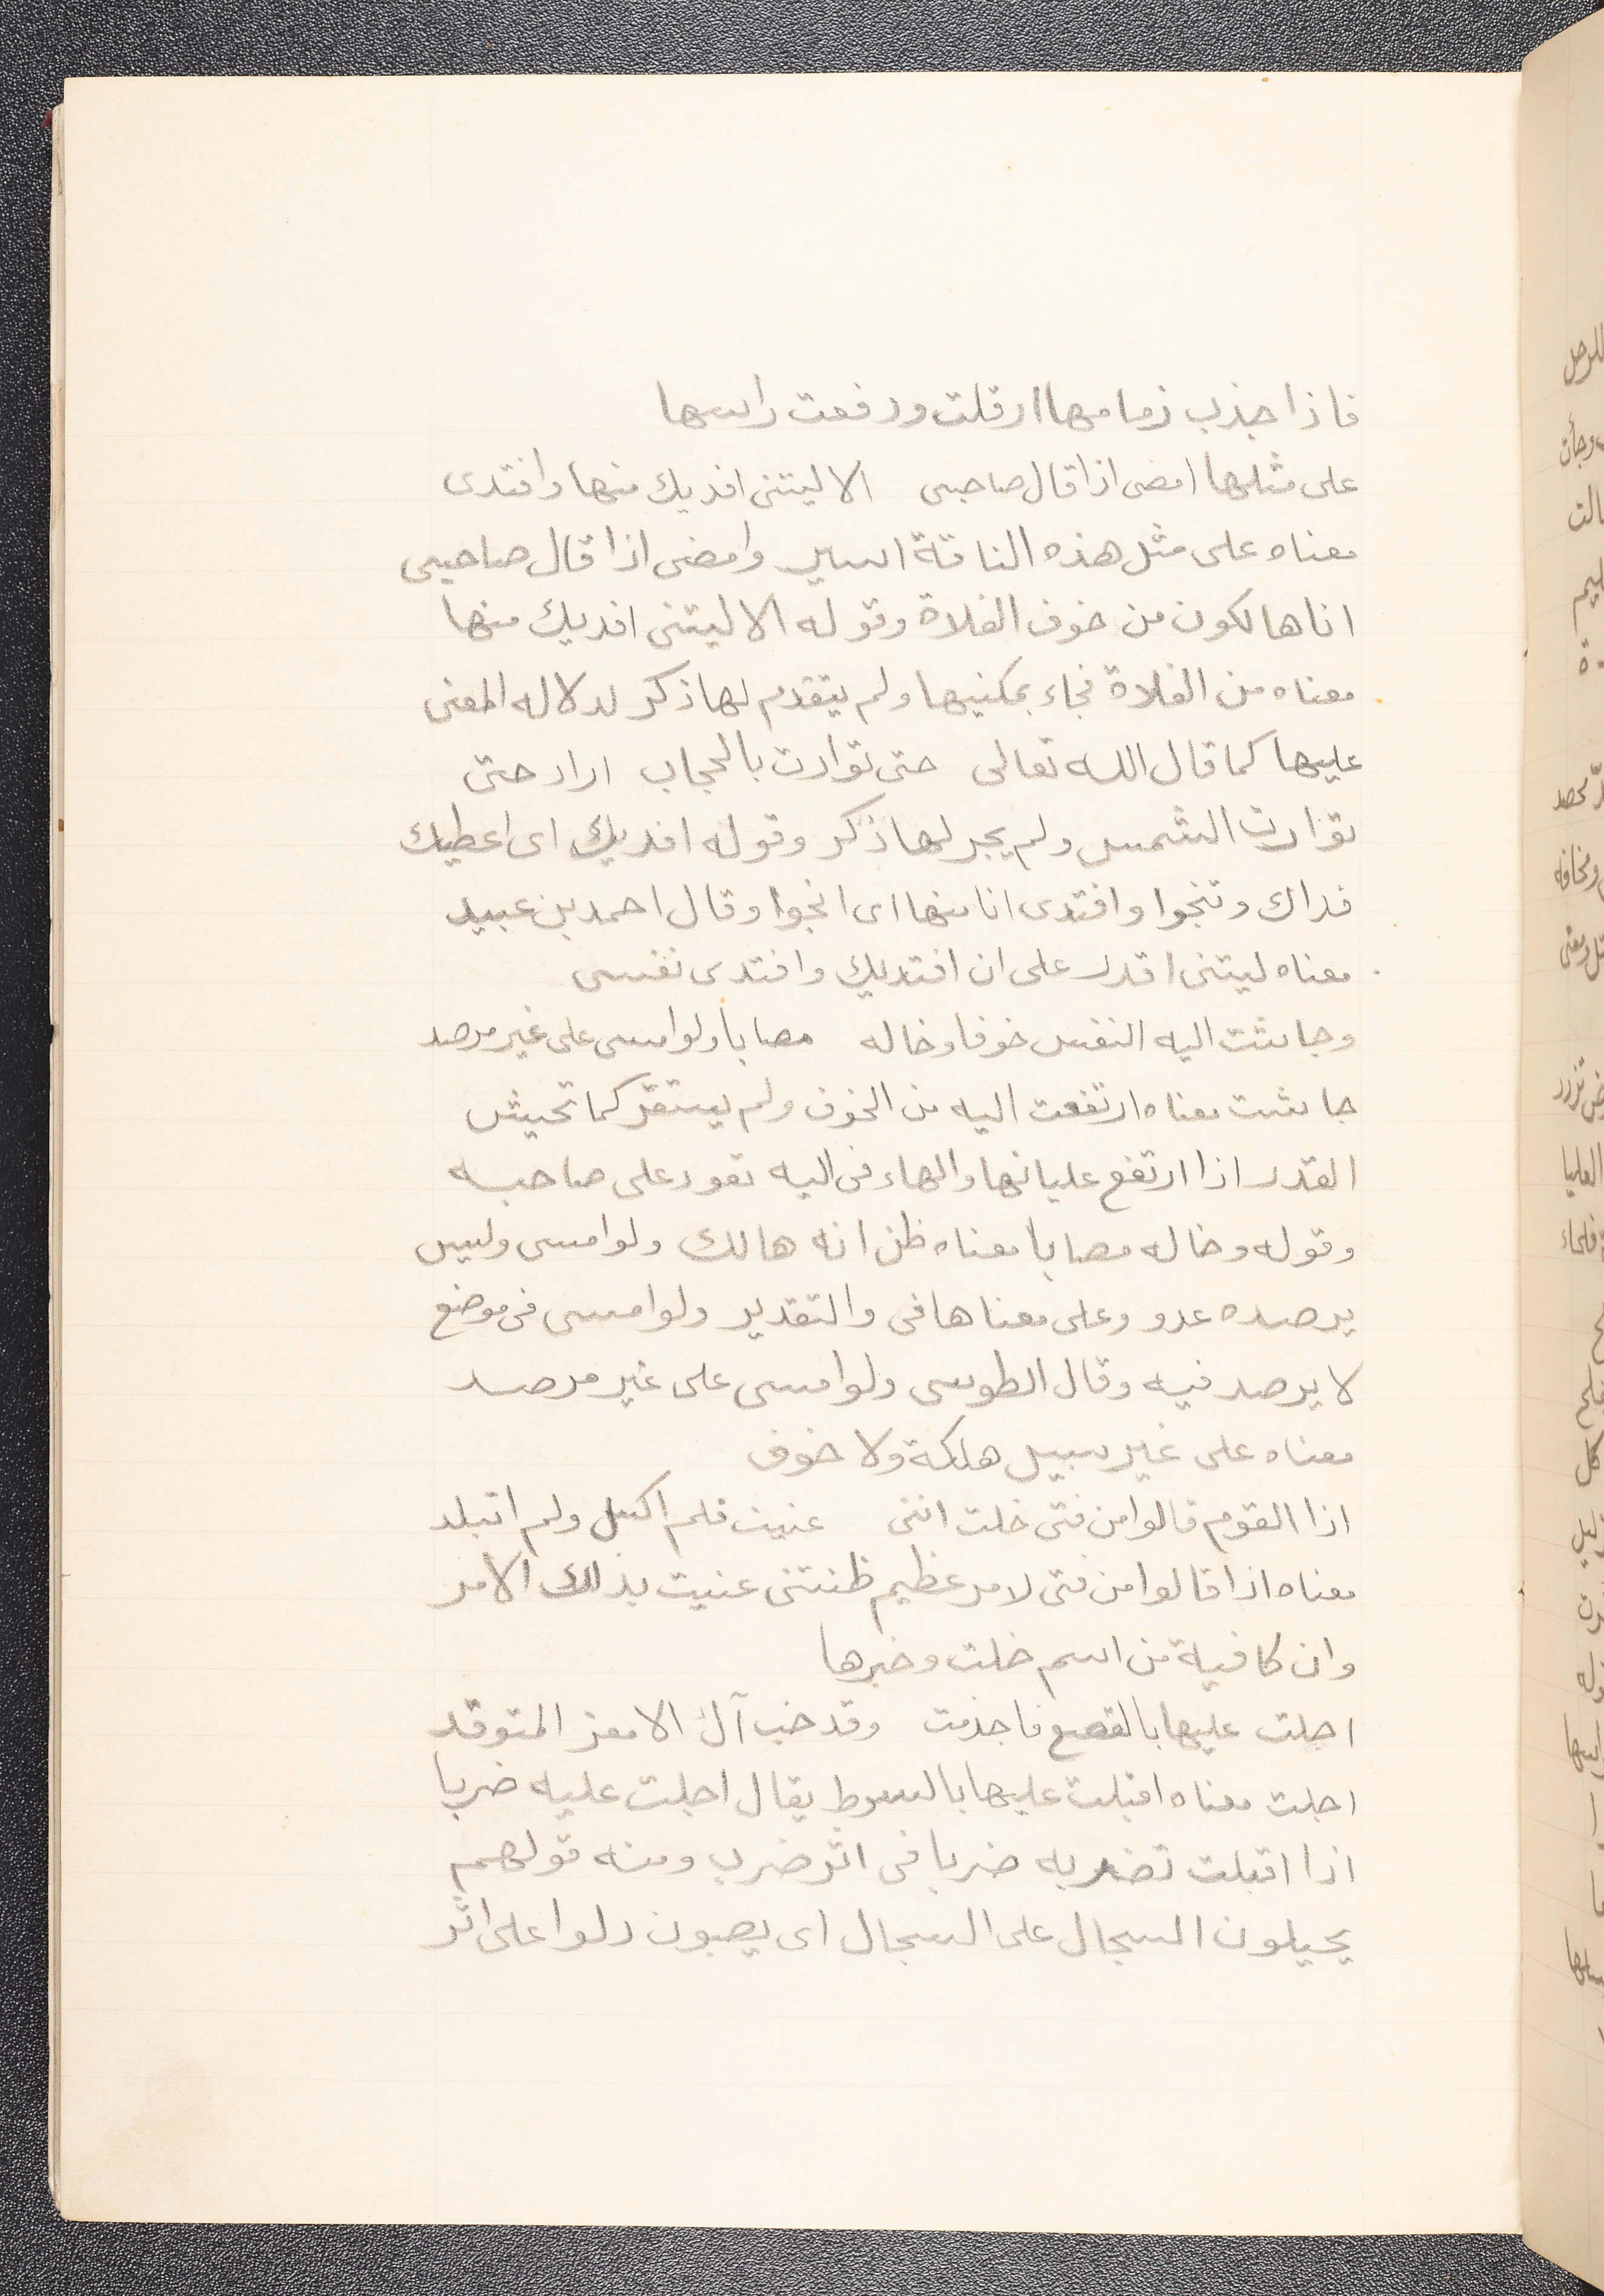 فاذا جذب زمامها ارقلت ورفعت راسها
على مثلها امضى اذا قال صاحبى   الا ليتنى افديك منها وافتدى
معناه على مثل هذه الناقة اسير وامضى اذا قال صاحبى
انا هالكون من خوف الفلاة وقوله الا ليتنى افديك منها
معناه من الفلاة فجاء بمكنيها ولم يتقدم لها ذكر لدلاله المعنى
عليها كما قال الله تعالى   حتى توارت بالحجاب   اراد حتى
توارت الشمس ولم يجر لها ذكر وقوله افديك اى اعطيك
فداك وتنجوا وافتدى انا منها اى انجوا وقال احمد بن عبيد
معناه ليتنى اقدر على ان افتديك وافتدى نفسى
وجاشت اليه النفس خوفا وخاله   مصابا ولو امسى على غير مرصد
جاشت معناه ارتفعت اليه من الخوف ولم يستقر كما تجيش
القدر اذا ارتفع عليانها والهاء فى اليه تعود على صاحبه
وقوله وخاله مصابا معناه ظن انه هالك ولو امسى وليس
يرصده عدو وعلى معناها فى والتقدير ولو امسى فى موضع
لا يرصد فيه وقال الطوسى ولو امسى على غير مرصد
معناه على غير سبيل هلكة ولا خوف
اذا القوم قالوا من فتى خلت اننى   عنيت فلم اكسل ولم اتبلد
معناه اذا قالوا من فتى لامر عظيم ظننتنى عنيت بذلك الامر
وان كافية من اسم خلت وخبرها
احلت عليها بالقصع فاجذمت   وقد خب آل الامعز المتوقد
احلت معناه اقبلت عليها بالسوط يقال احلت عليه ضربا
اذا اقبلت تضربه ضربا فى اثر ضرب ومنه قولهم
يحيلون السجال على السجال اى يصبون دلوا على اثر